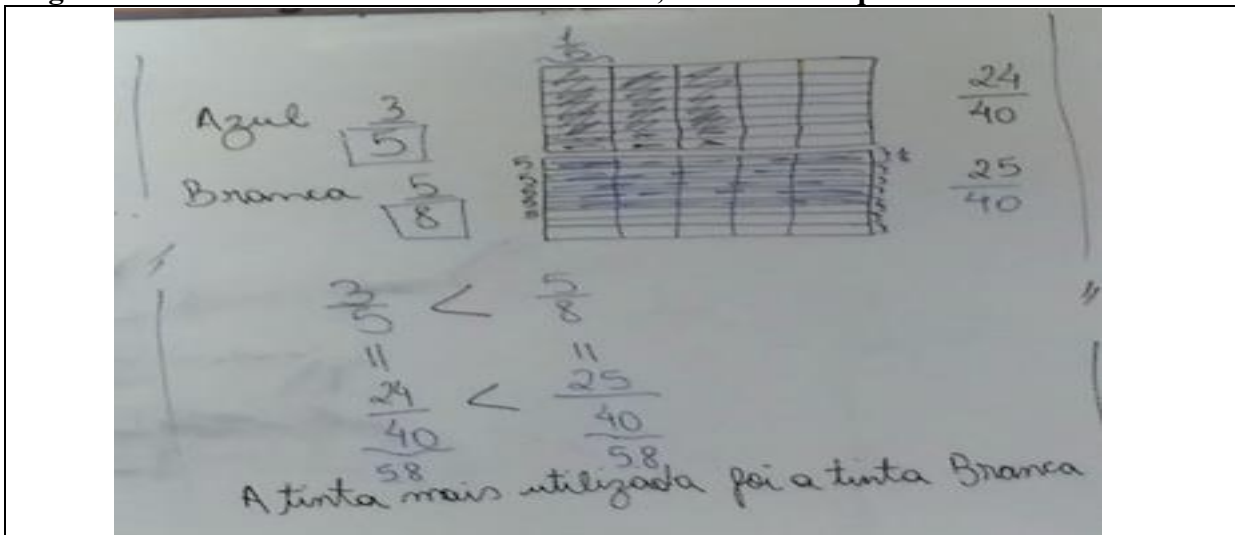 1/5
Azul 3/5 24/40
Branca 5/8 25/40
3/5 < 5/8
" "
24/40 < 25/40
58 58
A tinta mais utilizada foi a tinta Branca